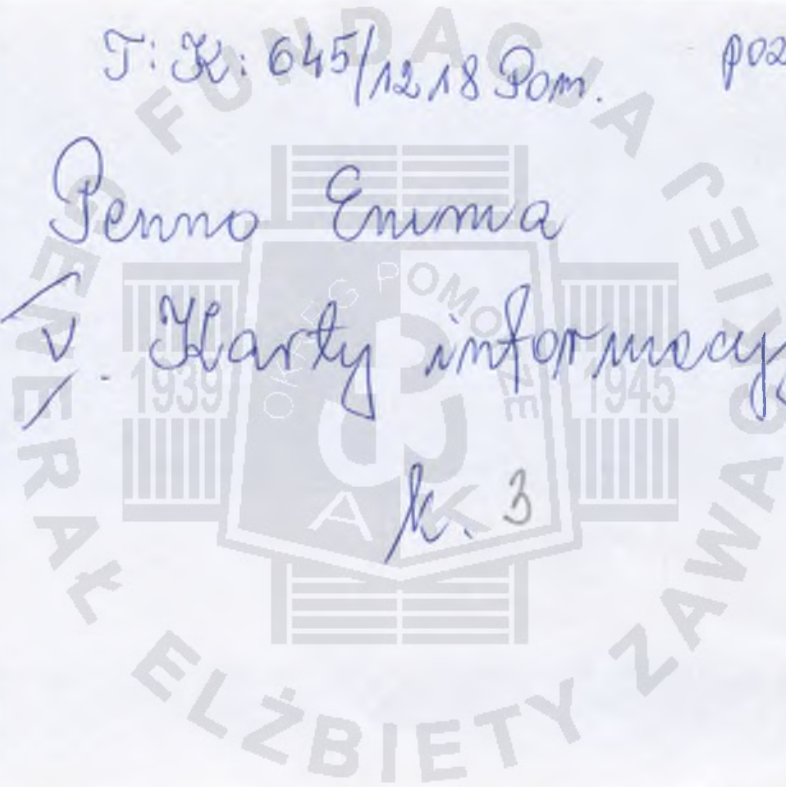 T: K: 645/1218 Pom.
Penno Emma
V. Karty informacy
k. 3
FUNDACJA GENERAŁ ELŻBIETY ZAWACKIEJ
OKRĘG POMORZE
1939
1945
AK